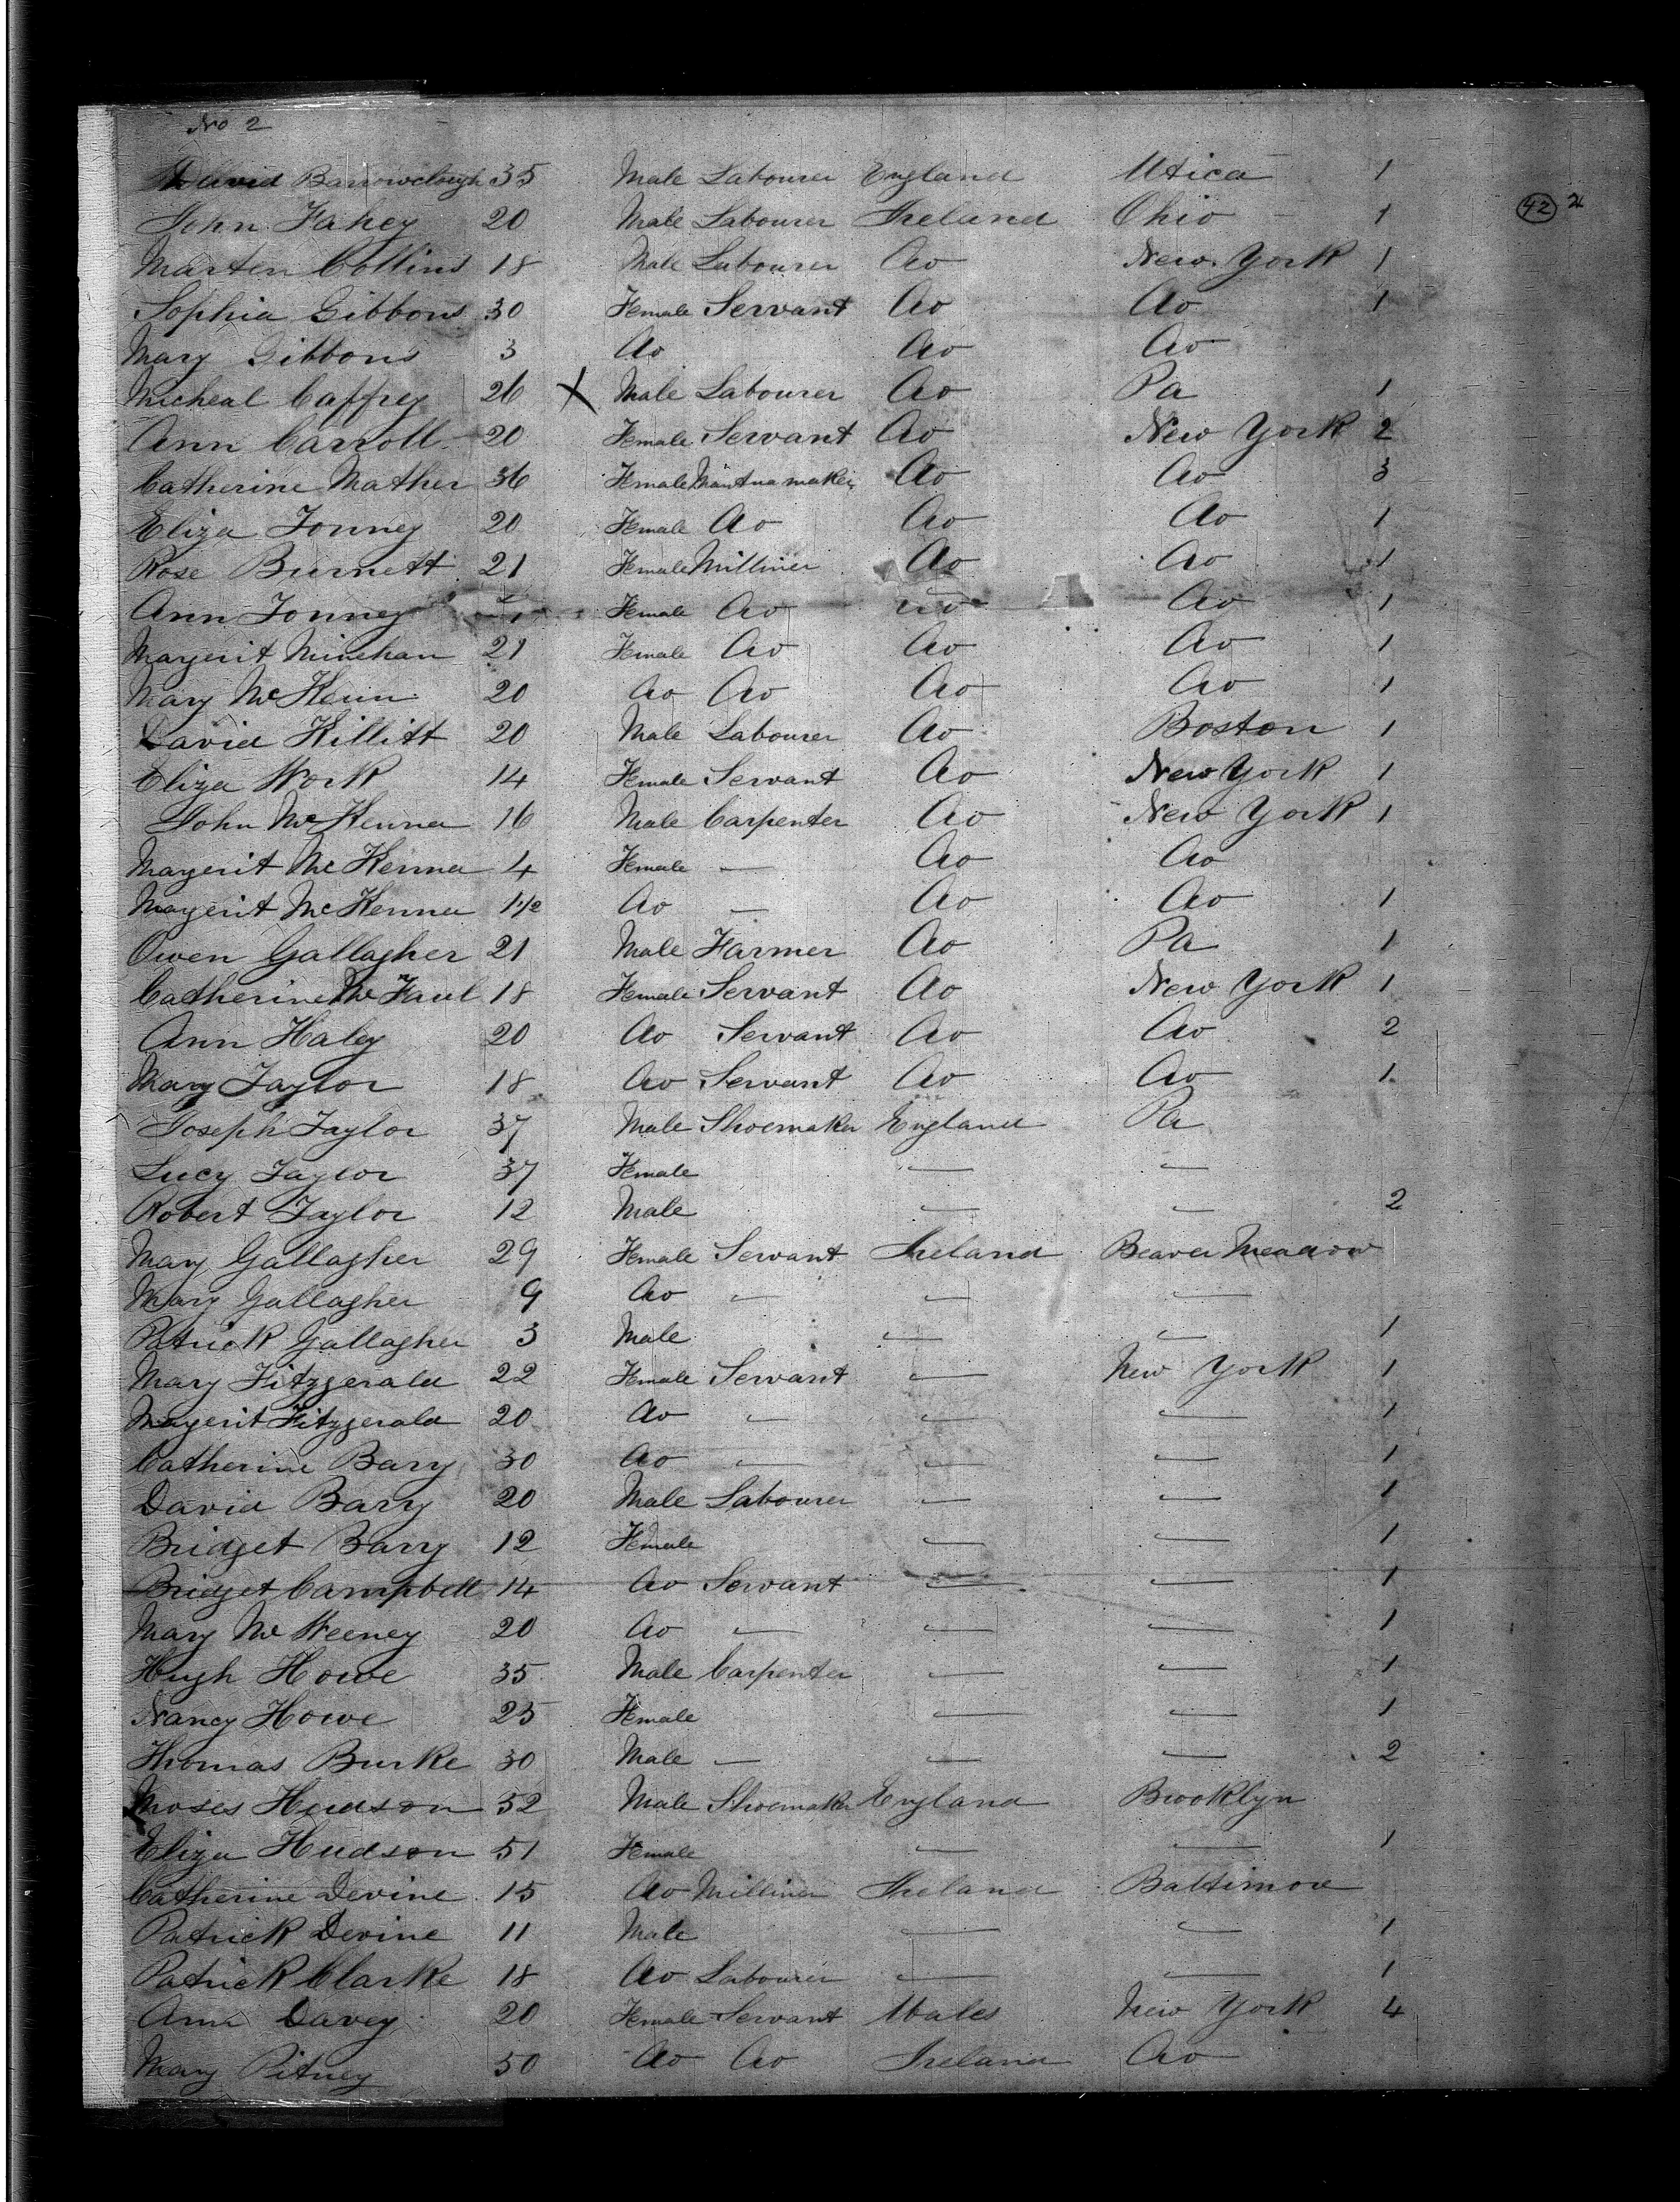 No 2
David Barrowclough 35 Male Labourer England Utica 1
John Fahey 20 Male Labourer Ireland Ohio 1
42 2
Marten Collins 18 Male Labourer do New York 1
Sophia Gibbons 30 Female Servant do do 1
Mary Gibbons 3 do do do
Micheal Caffrey 26 X Male Labourer do Pa 1
Ann Carroll 20 Female Servant do New York 2
Catherine Mather 36 Female Mantua maker do do 3
Eliza Tonney 20 Female do do do 1
Rose Burnett 21 Female Milliner do do 1
Ann Tonney Female do do do 1
Magerit Minehan 21 Female do do do 1
Mary McKenn 20 do do do do 1
David Killitt 20 Male Labourer do Boston 1
Eliza Work 14 Female Servant do New York 1
John McKenna 16 Male Carpenter do New York 1
Magerit McKenna 4 Female — do do
Magerit McKenna 1 1/2 do — do do 1
Owen Gallagher 21 Male Farmer do Pa 1
Catherine McFaul 18 Female Servant do New York 1
Ann Haley 20 do Servant do do 2
Mary Taylor 18 do Servant do do 1
Joseph Taylor 37 Male Shoemaker England Pa
Lucy Taylor 37 Female — —
Robert Taylor 12 Male — — 2
Mary Gallagher 29 Female Servant Ireland Beaver Meadow
Mary Gallagher 9 do — — —
Patrick Gallagher 3 Male — — 1
Mary Fitzgerald 22 Female Servant — New York 1
Magerit Fitzgerald 20 do — — — 1
Catherine Bary 30 do — — — 1
David Barry 20 Male Labourer — — 1
Bridget Barry 12 Female — — 1
Bridget Campbell 14 do Servant — — 1
Mary McWeeney 20 do — — — 1
Hugh Howe 35 Male Carpenter — — 1
Nancy Howe 25 Female — — 1
Thomas Burke 30 Male — — — 2
Moses Hudson 52 Male Shoemaker England Brooklyn
Eliza Hudson 51 Female — — 1
Catherine Devine 15 do Milliner Ireland Baltimore
Patrick Devine 11 Male — — 1
Patrick Clarke 18 do Labourer — — 1
Ann Davey 20 Female Servant Wales New York 4
Mary Pitney 50 do do Ireland do